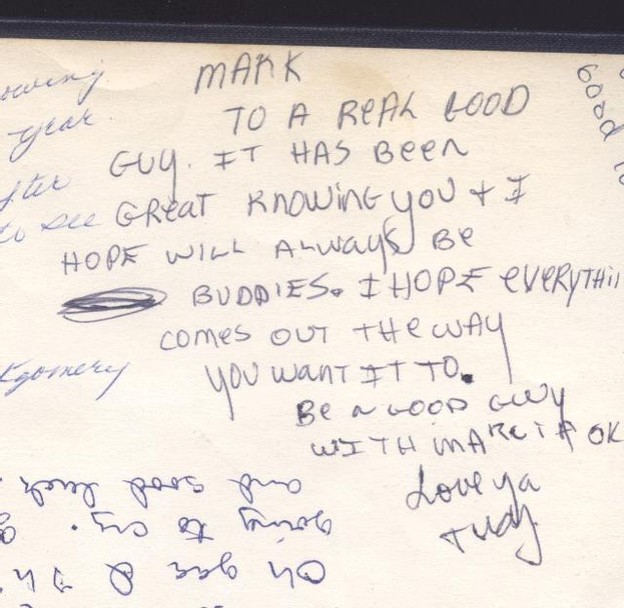 MARK
TO A REAL GOOD
GUY. IT HAS BEEN
GREAT KNOWING YOU + I
HOPE WILL ALWAYS BE
BUDDIES. I HOPE EVERYTHIN
COMES OUT THE WAY
YOU WANT IT TO.
BE A GOOD GUY
WITH MARCIA OK
Love ya
year
to see
good
Oh
going to cry.
and good luck